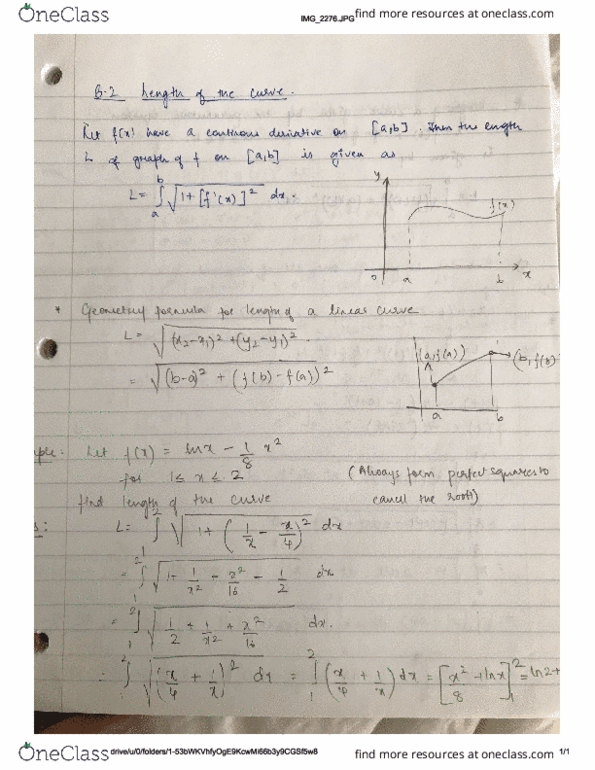 OneClass
IMG_2276.JPG
find more resources at oneclass.com
8.2 Length of the curve.
Let f(x) have a continous derivative on [a,b]. Then the length
L of graph of f on [a,b] is given as
L = ∫_a^b √(1+[f'(x)]²) dx.
y
f(x)
0 a b x
* Geometry formula for length of a linear curve
L = √((x₂-x₁)² + (y₂-y₁)²).
= √((b-a)² + (f(b)-f(a))²
(a,f(a))
(b,f(b)
a b
ple: Let f(x) = lnx - 1/8 x²
for 1 ≤ x ≤ 2
(Always form perfect squares to
cancel the root)
find length of the curve
s:
L = ∫_1^2 √(1+(1/x - x/4)²) dx
= ∫_1^2 √(1 + 1/x² + x²/16 - 1/2) dx
= ∫_1^2 √(1/2 + 1/x² + x²/16) dx.
∫_1^2 √((x/4 + 1/x)²) dx = ∫_1^2 (x/4 + 1/x) dx = [x²/8 + lnx]_1^2 = ln2+
OneClass
drive/u/0/folders/1-53bWKVhfyOgE9KcwMi66b3y9CGSf5w8
1/1
find more resources at oneclass.com